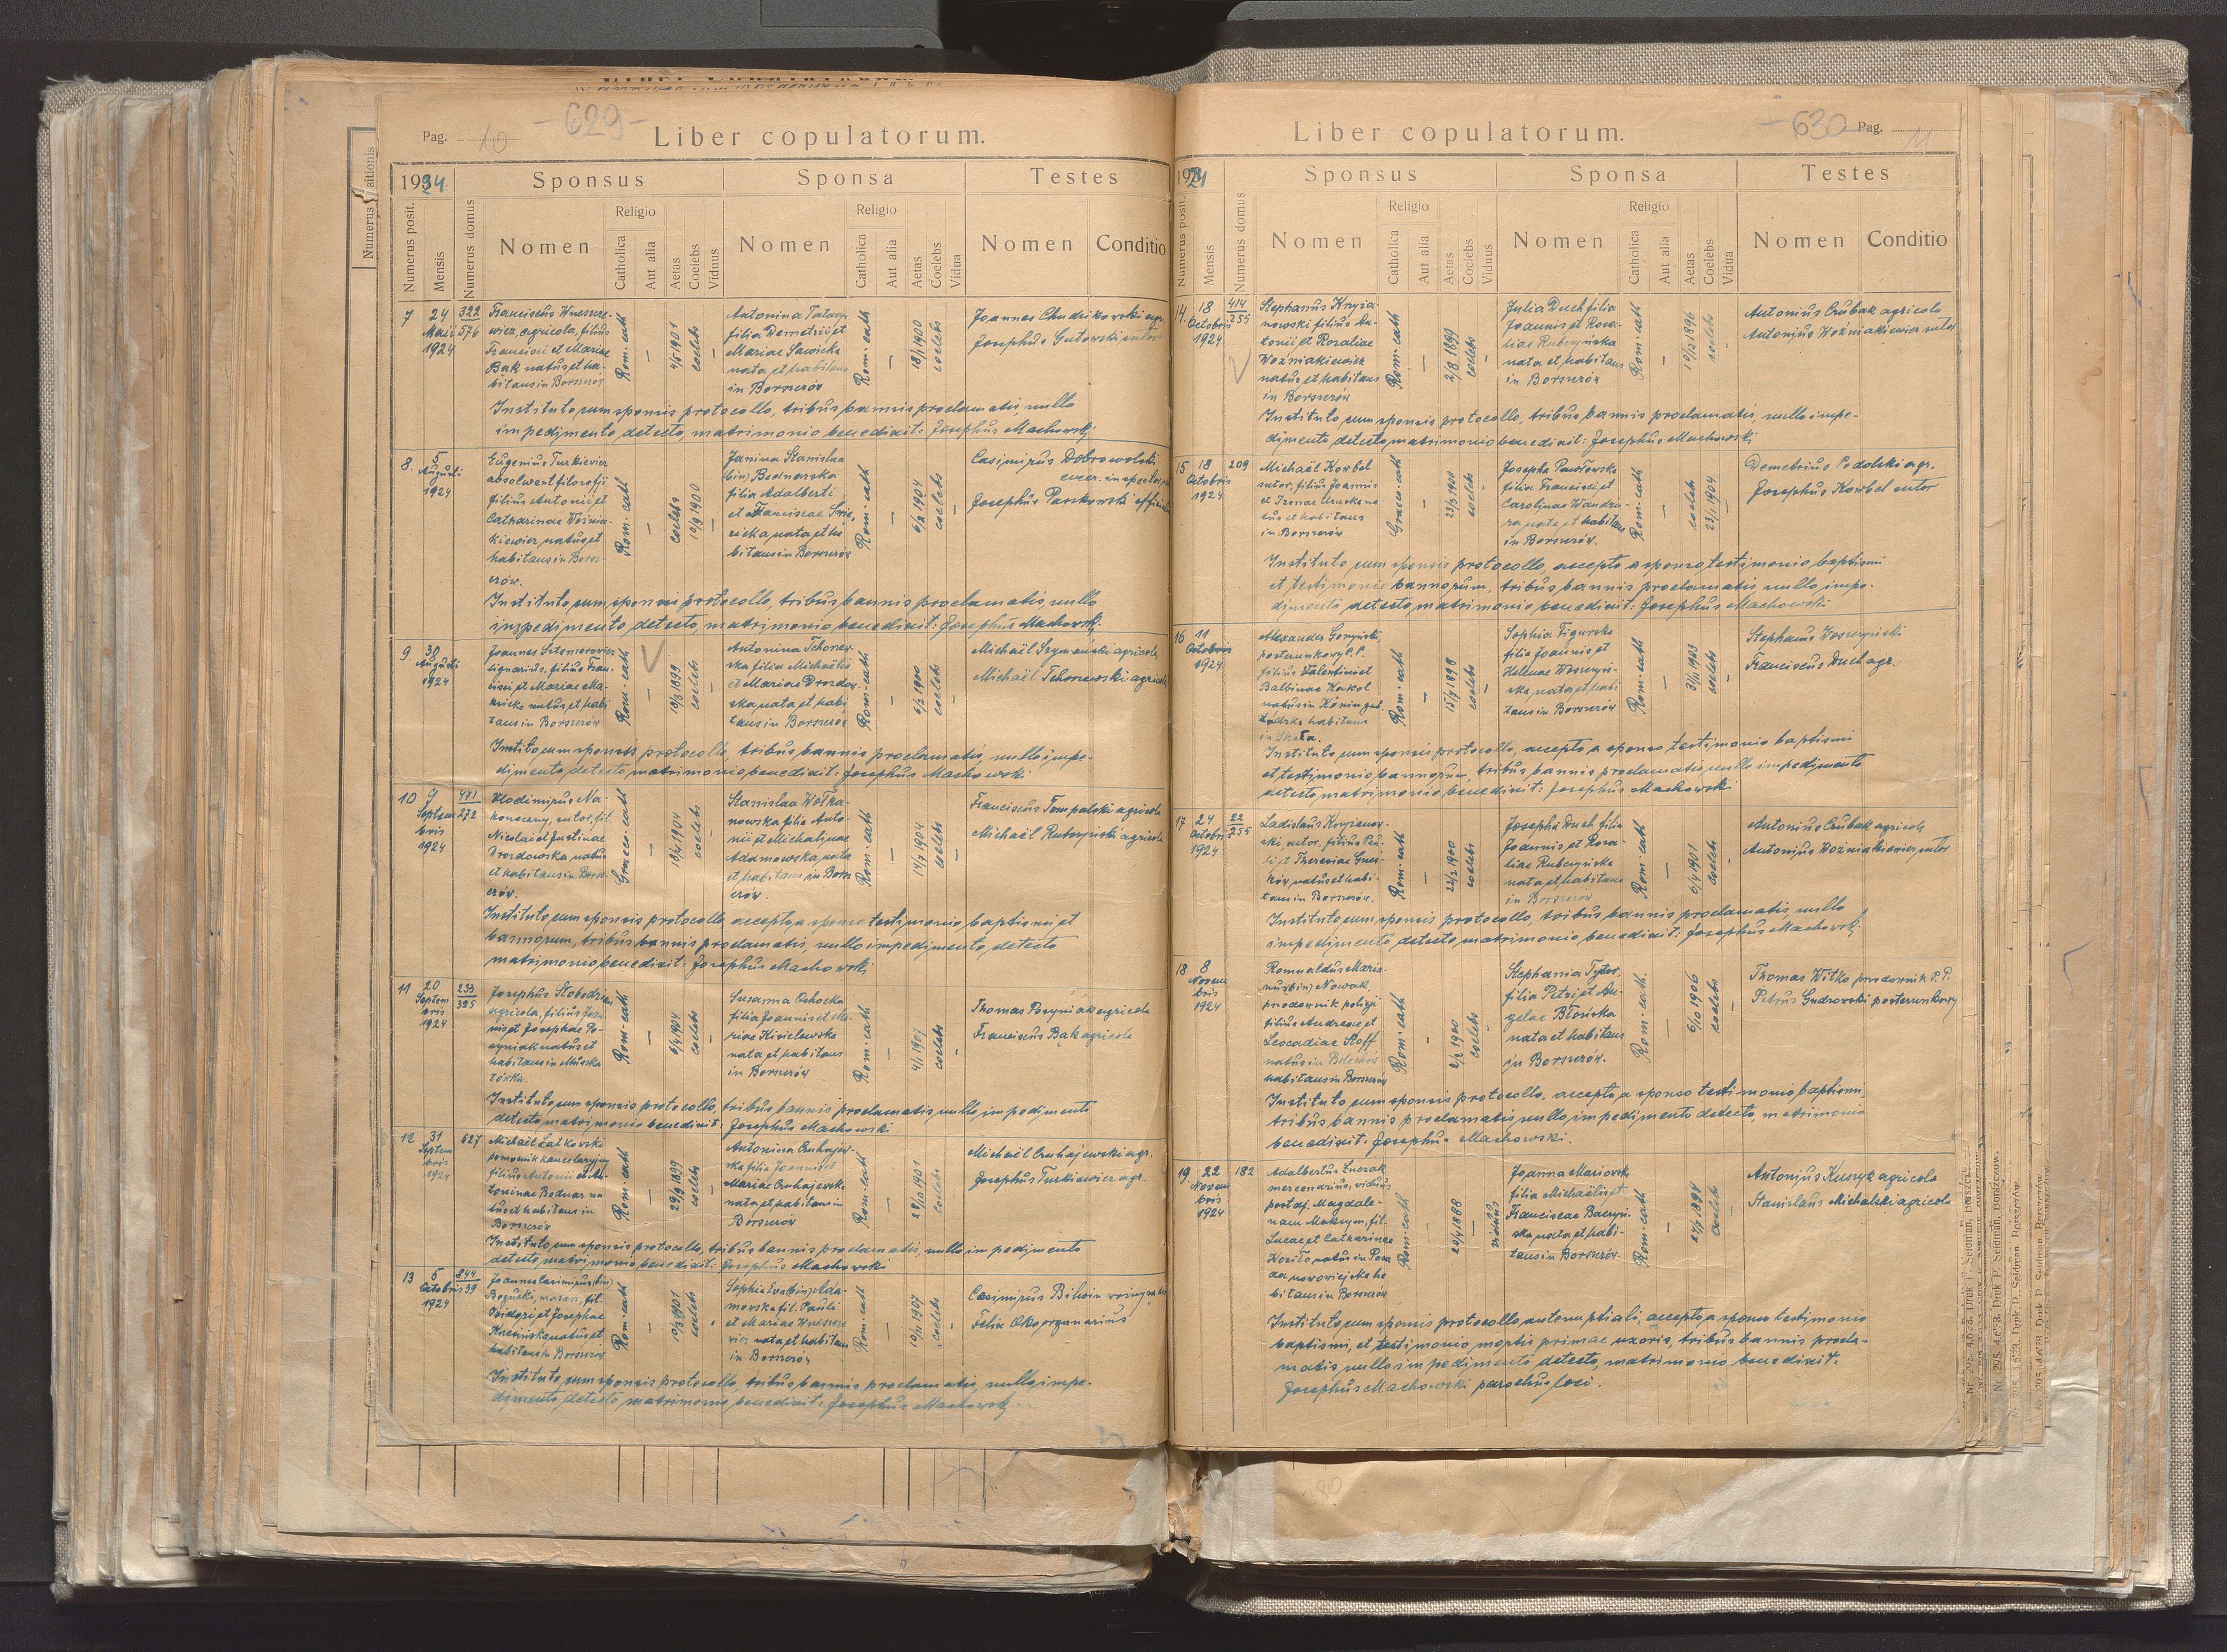 Pag. 10 -629- Liber copulatorum.
1924. Sponsus Sponsa Testes
Numerus posit. Mensis Numerus domus Nomen Religio Catholica Aut alia Aetas Coelebs Viduus Nomen Religio Catholica Aut alia Aetas Coelebs Vidua Nomen Conditio
7 24 Maii 1924 322 576
filius
Francisci et Mariae
Bąk natus et ha-
bitans in Borszczów
Rom. cath — 4/5 1901 coelebs —
filia Demetrii et
Mariae Sawicka
nata et habitans
in Borszczów
Rom. cath — coelebs —
Joannes Chudzikowski agr.
Josephus Gutowski sutor
Instituto cum sponsis protocollo, tribus bannis proclamatis, nullo
impedimento detecto, matrimonio benedixit: Josephus Machowski
8. 5 Augusti 1924
Eugenius Turkiewicz
absolwent filozofji
filius Antonii et
Catharinae Woźnia-
kiewicz natus et
habitans in Borsz-
czów.
Rom. cath — coelebs 10/9 1900 —
Janina Stanislaa
(bin) Bednarska
filia Adalberti
et Franciscae
nata et ha-
bitans in Borszczów
Rom. cath — 6/2 1904 coelebs —
Casimirus Dobrowolski
Josephus Paszkowski
Instituto cum sponsis protocollo, tribus bannis proclamatis, nullo
impedimento detecto, matrimonio benedixit: Josephus Machowski
9. 30 Augusti 1924
Joannes
lignarius, filius Fran-
cisci et Mariae
natus et habi
tans in Borszczów
Rom. cath — 18/3 1899 coelebs —
Antonina Tchorzew-
ska filia Michaëlis
et Mariae Drozdow-
ska nata et habi
tans in Borszczów
Rom. cath — 6/2 1900 coelebs —
Michaël Szymański agricola
Michaël Tchorzewski agricola
Instituto cum sponsis protocollo, tribus bannis proclamatis, nullo impe-
dimento detecto matrimonio benedixit: Josephus Machowski
10 9 Septembris 1924 471 272
Wlodimirus Na-
koneczny, sutor, fil.
Nicolai et Justinae
Drozdowska natus
et habitans in Borsz-
czów.
Graeco. cath — 18/4 1904 coelebs —
Stanislaa Wołka-
nowska filia Anto-
nii et Michalinae
Adamowska nata
et habitans in Borsz
czów.
Rom. cath — 14/7 1904 coelebs —
Franciscus Tompalski agricola
Michaël Rubczyński agricola
Instituto cum sponsis protocollo, accepto a sponso testimonio baptismi et
bannorum, tribus bannis proclamatis, nullo impedimento detecto
matrimonio benedixit: Josephus Machowski
11 20 Septembris 1924 233 325
Josephus Słobodzian
agricola, filius Joan-
nis et Josephae Po-
syniak natus et
habitans in
Rom. cath — coelebs —
Susanna Ochocka
filia Joannis et Ma-
riae Kisielewska
nata et habitans
in Borszczów
Rom. cath — 4/1 1907 coelebs —
Thomas Posyniak agricola
Franciscus Bąk agricola
Instituto cum sponsis protocollo, tribus bannis proclamatis, nullo impedimento
detecto, matrimonio benedixit Josephus Machowski
12 31 Septembris 1924 527
Michaël Łatkowski
pomocnik kancelaryjny
filius Antonii et An-
toninae Bednar na
tus et habitans in
Borszczów
Rom. cath — 29/9 1899 coelebs —
Antonina Czuhajew-
ska filia Joannis et
Mariae Czuhajewska
nata et habitans in
Borszczów
Rom. cath — 28/10 1901 coelebs —
Michaël Czuhajewski agr.
Josephus Turkiewicz agr.
Instituto cum sponsis protocollo, tribus bannis proclamatis, nullo impedimento
detecto, matrimonio benedixit: Josephus Machowski
13 5 Octobris 1924 844 39
Joannes Casimirus (bin)
fil.
Isidori et Josephae
natus et
habitans in Borszczów
Rom. cath — 10/3 1901 coelebs
Sophia Eva (bin) Ada-
mowska fil. Pauli
et Mariae
nata et habitans
in Borszczów
Rom. cath — 10/11 1907 coelebs —
Casimirus
Felix Oko organarius
Instituto cum sponsis protocollo, tribus bannis proclamatis, nullo impe-
dimento detecto matrimonio benedixit: Josephus Machowski
Liber copulatorum. -630- Pag. 11
1924 Sponsus Sponsa Testes
Numerus posit. Mensis Numerus domus Nomen Religio Catholica Aut alia Aetas Coelebs Viduus Nomen Religio Catholica Aut alia Aetas Coelebs Vidua Nomen Conditio
14. 18 Octobris 1924 414 255
Stephanus Krzyża-
nowski filius An-
tonii et Rosaliae
Woźniakiewicz
natus et habitans
in Borszczów
Rom. cath — 2/8 1899 coelebs —
Julia Duch filia
Joannis et Rosa-
liae Rubczyńska
nata et habitans
in Borszczów
Rom. cath — 10/12 1896 coelebs —
Antonius Czubak agricola
Antonius Woźniakiewicz sutor
Instituto cum sponsis protocollo, tribus bannis proclamatis, nullo impe-
dimento detecto matrimonio benedixit: Josephus Machowski
15 18 Octobris 1924 209
Michaël Korbel
sutor, filius Joannis
et Irenae na
tus et habitans
in Borszczów
Graeco. cath — 23/5 1900 coelebs —
Josepha Pawłowska
filia Francisci et
Carolinae
nata et habitans
in Borszczów.
Rom. cath — coelebs 23/1 1904 —
Demetrius Podolski agr.
Josephus Korbel sutor
Instituto cum sponsis protocollo, accepto a sponso testimonio baptismi
et testimonio bannorum, tribus bannis proclamatis, nullo impe-
dimento detecto matrimonio benedixit: Josephus Machowski
16 11 Octobris 1924
Alexander Goryński
posterunkowy P.P.
filius Valentini et
Balbinae Kąkol
natus in
habitans
in Skała.
Rom. cath — 15/7 1898 coelebs —
Sophia Figurska
filia Joannis et
Helenae Woszczyń-
ska nata et habi
tans in Borszczów
Rom. cath — 31/11 1903 coelebs —
Stephanus Woszczyński
Franciscus Duch agr.
Instituto cum sponsis protocollo, accepto a sponso testimonio baptismi
et testimonio bannorum, tribus bannis proclamatis, nullo impedimento
detecto, matrimonio benedixit: Josephus Machowski
17 24 Octobris 1924 22 255
Ladislaus Krzyżanow-
ski, sutor, filius Pau-
li et Theresiae
natus et habi-
tans in Borszczów.
Rom. cath — 22/2 1900 coelebs —
Josepha Duch filia
Joannis et Rosa-
liae Rubczyńska
nata et habitans
in Borszczów
Rom. cath — 6/4 1901 coelebs —
Antonius Czubak agricola
Antonius Woźniakiewicz sutor
Instituto cum sponsis protocollo, tribus bannis proclamatis, nullo
impedimento detecto, matrimonio benedixit: Josephus Machowski
18 8 Novembris 1924
Romualdus Maria-
nus (bin) Nowak,
przodownik policji
filius Andreae et
Leocadiae Stoff
natus in
habitans in Borszczów
Rom. cath — 2/2 1900 coelebs —
Stephania
filia Petri et An-
gelae Błońska
nata et habitans
in Borszczów.
Rom. cath. — 6/10 1906 coelebs —
Thomas Witko przodownik P.P.
Petrus posterunkowy
Instituto cum sponsis protocollo, accepto a sponso testimonio baptismi,
tribus bannis proclamatis, nullo impedimento detecto, matrimonio
benedixit: Josephus Machowski.
19. 22 Novembris 1924 182
Adalbertus
mercenarius, viduus
post
fil.
Lucae et Catharinae
natus in
ha
bitans in Borszczów
Rom. cath — 20/4 1888 — viduus
Joanna
filia Michaëlis et
Franciscae
nata et habi-
tans in Borszczów.
Rom. cath — coelebs —
Antonius agricola
Stanislaus Michalski agricola
Instituto cum sponsis protocollo antenuptiali, accepto a sponso testimonio
baptismi, et testimonio mortis primae uxoris, tribus bannis procla-
matis, nullo impedimento detecto, matrimonio benedixit:
Josephus Machowski parochus loci.